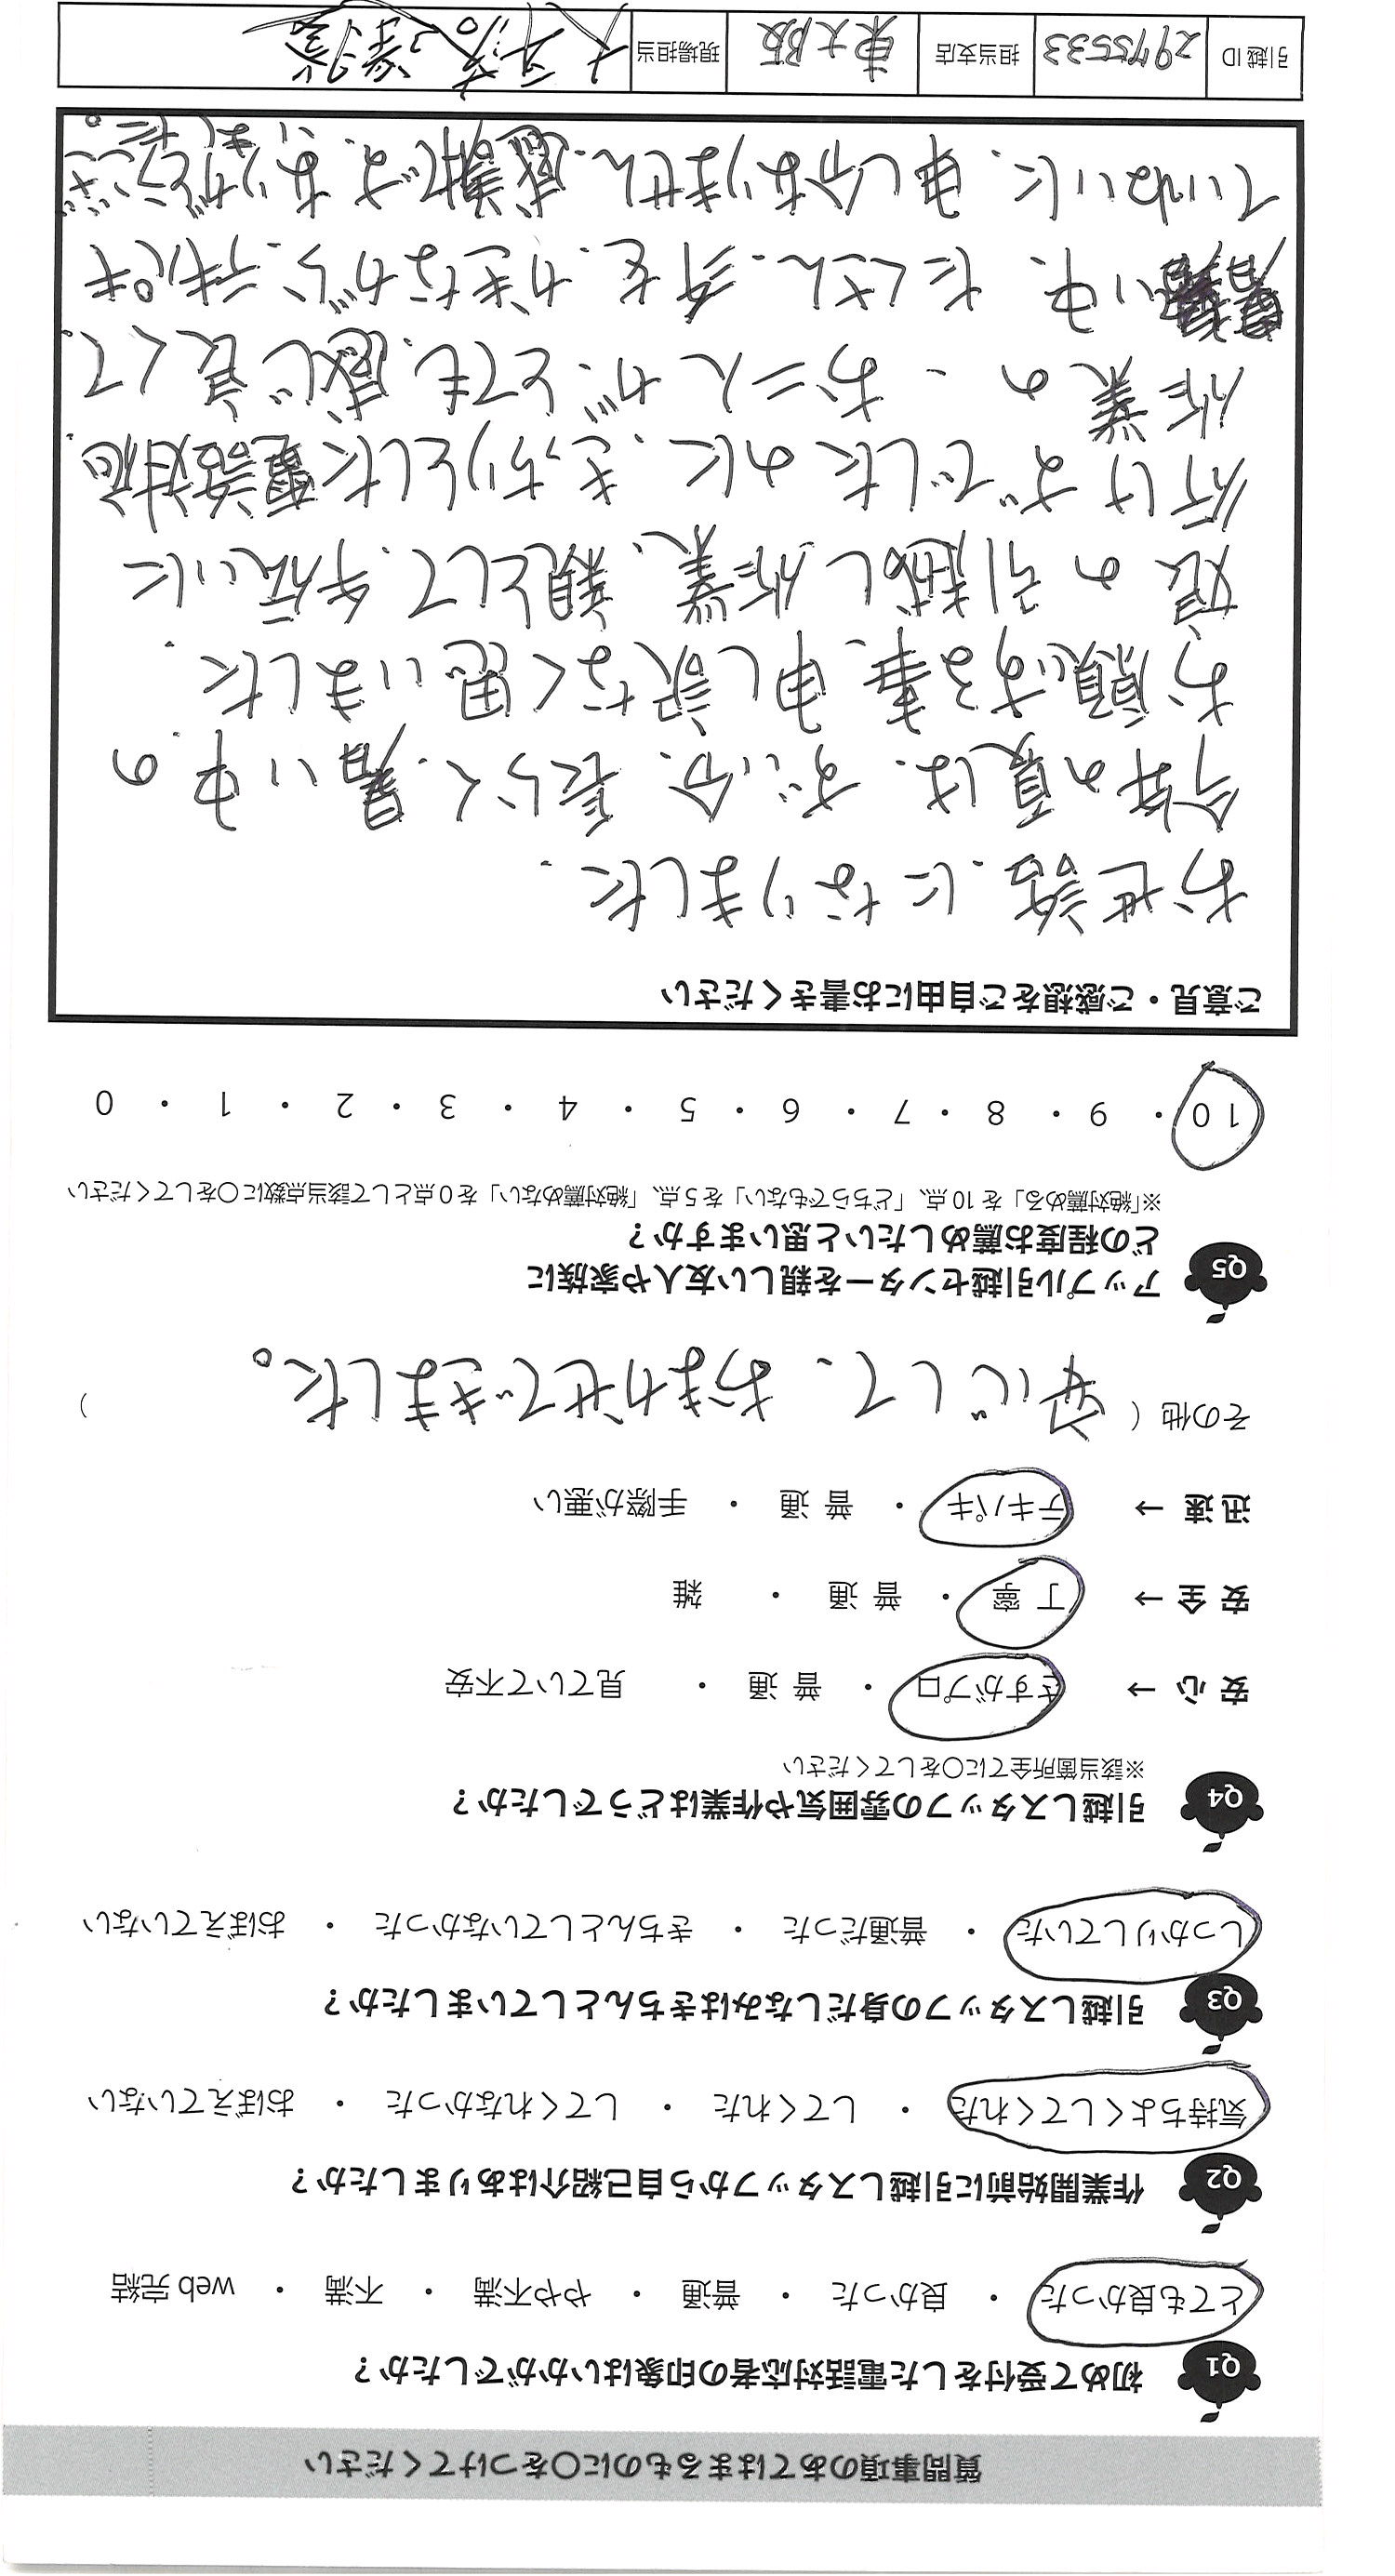 質問事項のあてはまるものに〇をつけてください
Q1 初めて受付をした電話対応者の印象はいかがでしたか？
とても良かった ・ 良かった ・ 普通 ・ やや不満 ・ 不満 ・ web 完結
Q2 作業開始前に引越しスタッフから自己紹介はありましたか？
気持ちよくしてくれた ・ してくれた ・ してくれなかった ・ おぼえていない
Q3 引越しスタッフの身だしなみはきちんとしていましたか？
しっかりしていた ・ 普通だった ・ きちんとしていなかった ・ おぼえていない
Q4 引越しスタッフの雰囲気や作業はどうでしたか？
※該当箇所全てに〇をしてください
安 心 → さすがプロ ・ 普 通 ・ 見ていて不安
安 全 → 丁 寧 ・ 普 通 ・ 雑
迅 速 → テキパキ ・ 普 通 ・ 手際が悪い
その他 ( 安心して、おまかせできました。 )
Q5 アップル引越センターを親しい友人や家族に
どの程度お薦めしたいと思いますか？
※「絶対薦める」を 10 点、「どちらでもない」を 5 点、「絶対薦めない」を 0 点として該当点数に〇をしてください
10 ・ 9 ・ 8 ・ 7 ・ 6 ・ 5 ・ 4 ・ 3 ・ 2 ・ 1 ・ 0
ご意見・ご感想をご自由にお書きください
お世話になりました.
今年の夏は、ずい分、長らく、暑い中の
お願いする事、申し訳なく思いました.
娘の引越し作業、親として、手伝いに
行けずでしたのに、きっちりとした電話対応.
作業の、お二人が、とても、感じ良くて.
暑い中、たくさん、汗を、かきながら、テキパキ
ていねいに、申し分ありません、感謝です、ありがとうござい
ました。
引越 ID 2975533 担当支店 東大阪 現場担当